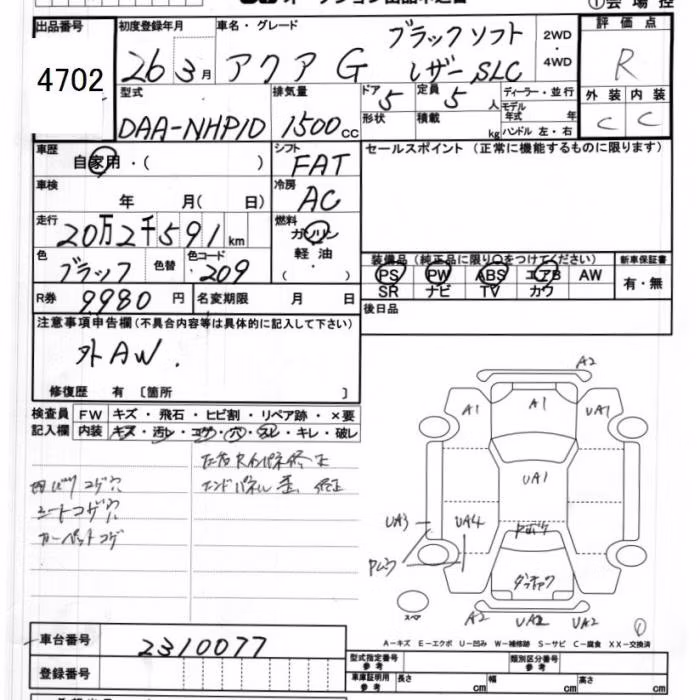 ①会場控
出品番号
4702
初度登録年月
26 3月
車名・グレード
アクア G ブラックソフト
レザー SLC
2WD
・
4WD
評価点
R
外装 内装
C C
型式
DAA-NHP10
排気量
1500cc
ドア
5
定員
5人
形状
積載
kg
ディーラー・並行
モデル
年式 年
ハンドル 左・右
車歴
自家用・( )
シフト
FAT
車検
年 月( 日)
冷房
AC
走行
20万2千591km
燃料
ガソリン
軽油
( )
色
ブラック
色替
色コード
209
R券 9980円
名変期限 月 日
セールスポイント (正常に機能するものに限ります)
装備品(純正品に限り○をつけてください)
PS PW ABS エアB AW
SR ナビ TV カワ
新車保証書
有・無
後日品
注意事項申告欄(不具合内容等は具体的に記入して下さい)
外AW.
修復歴 有 〔箇所 〕
検査員
記入欄
FW キズ・飛石・ヒビ割・リペア跡・×要
内装 キズ・汚レ・コゲ・穴・スレ・キレ・破レ
エンドパネル
シートコゲ穴
カーペットコゲ
A2
A1
A1
UA1
UA1
UA3
UA4
スペア
A2
UA2
UA2
①
A-キズ E-エクボ U-凹み W-補修跡 S-サビ C-腐食 XX-交換済
車台番号
2310077
登録番号
型式指定番号
参考
類別区分番号
参考
車庫証明用
参考
長さ cm
幅 cm
高さ cm